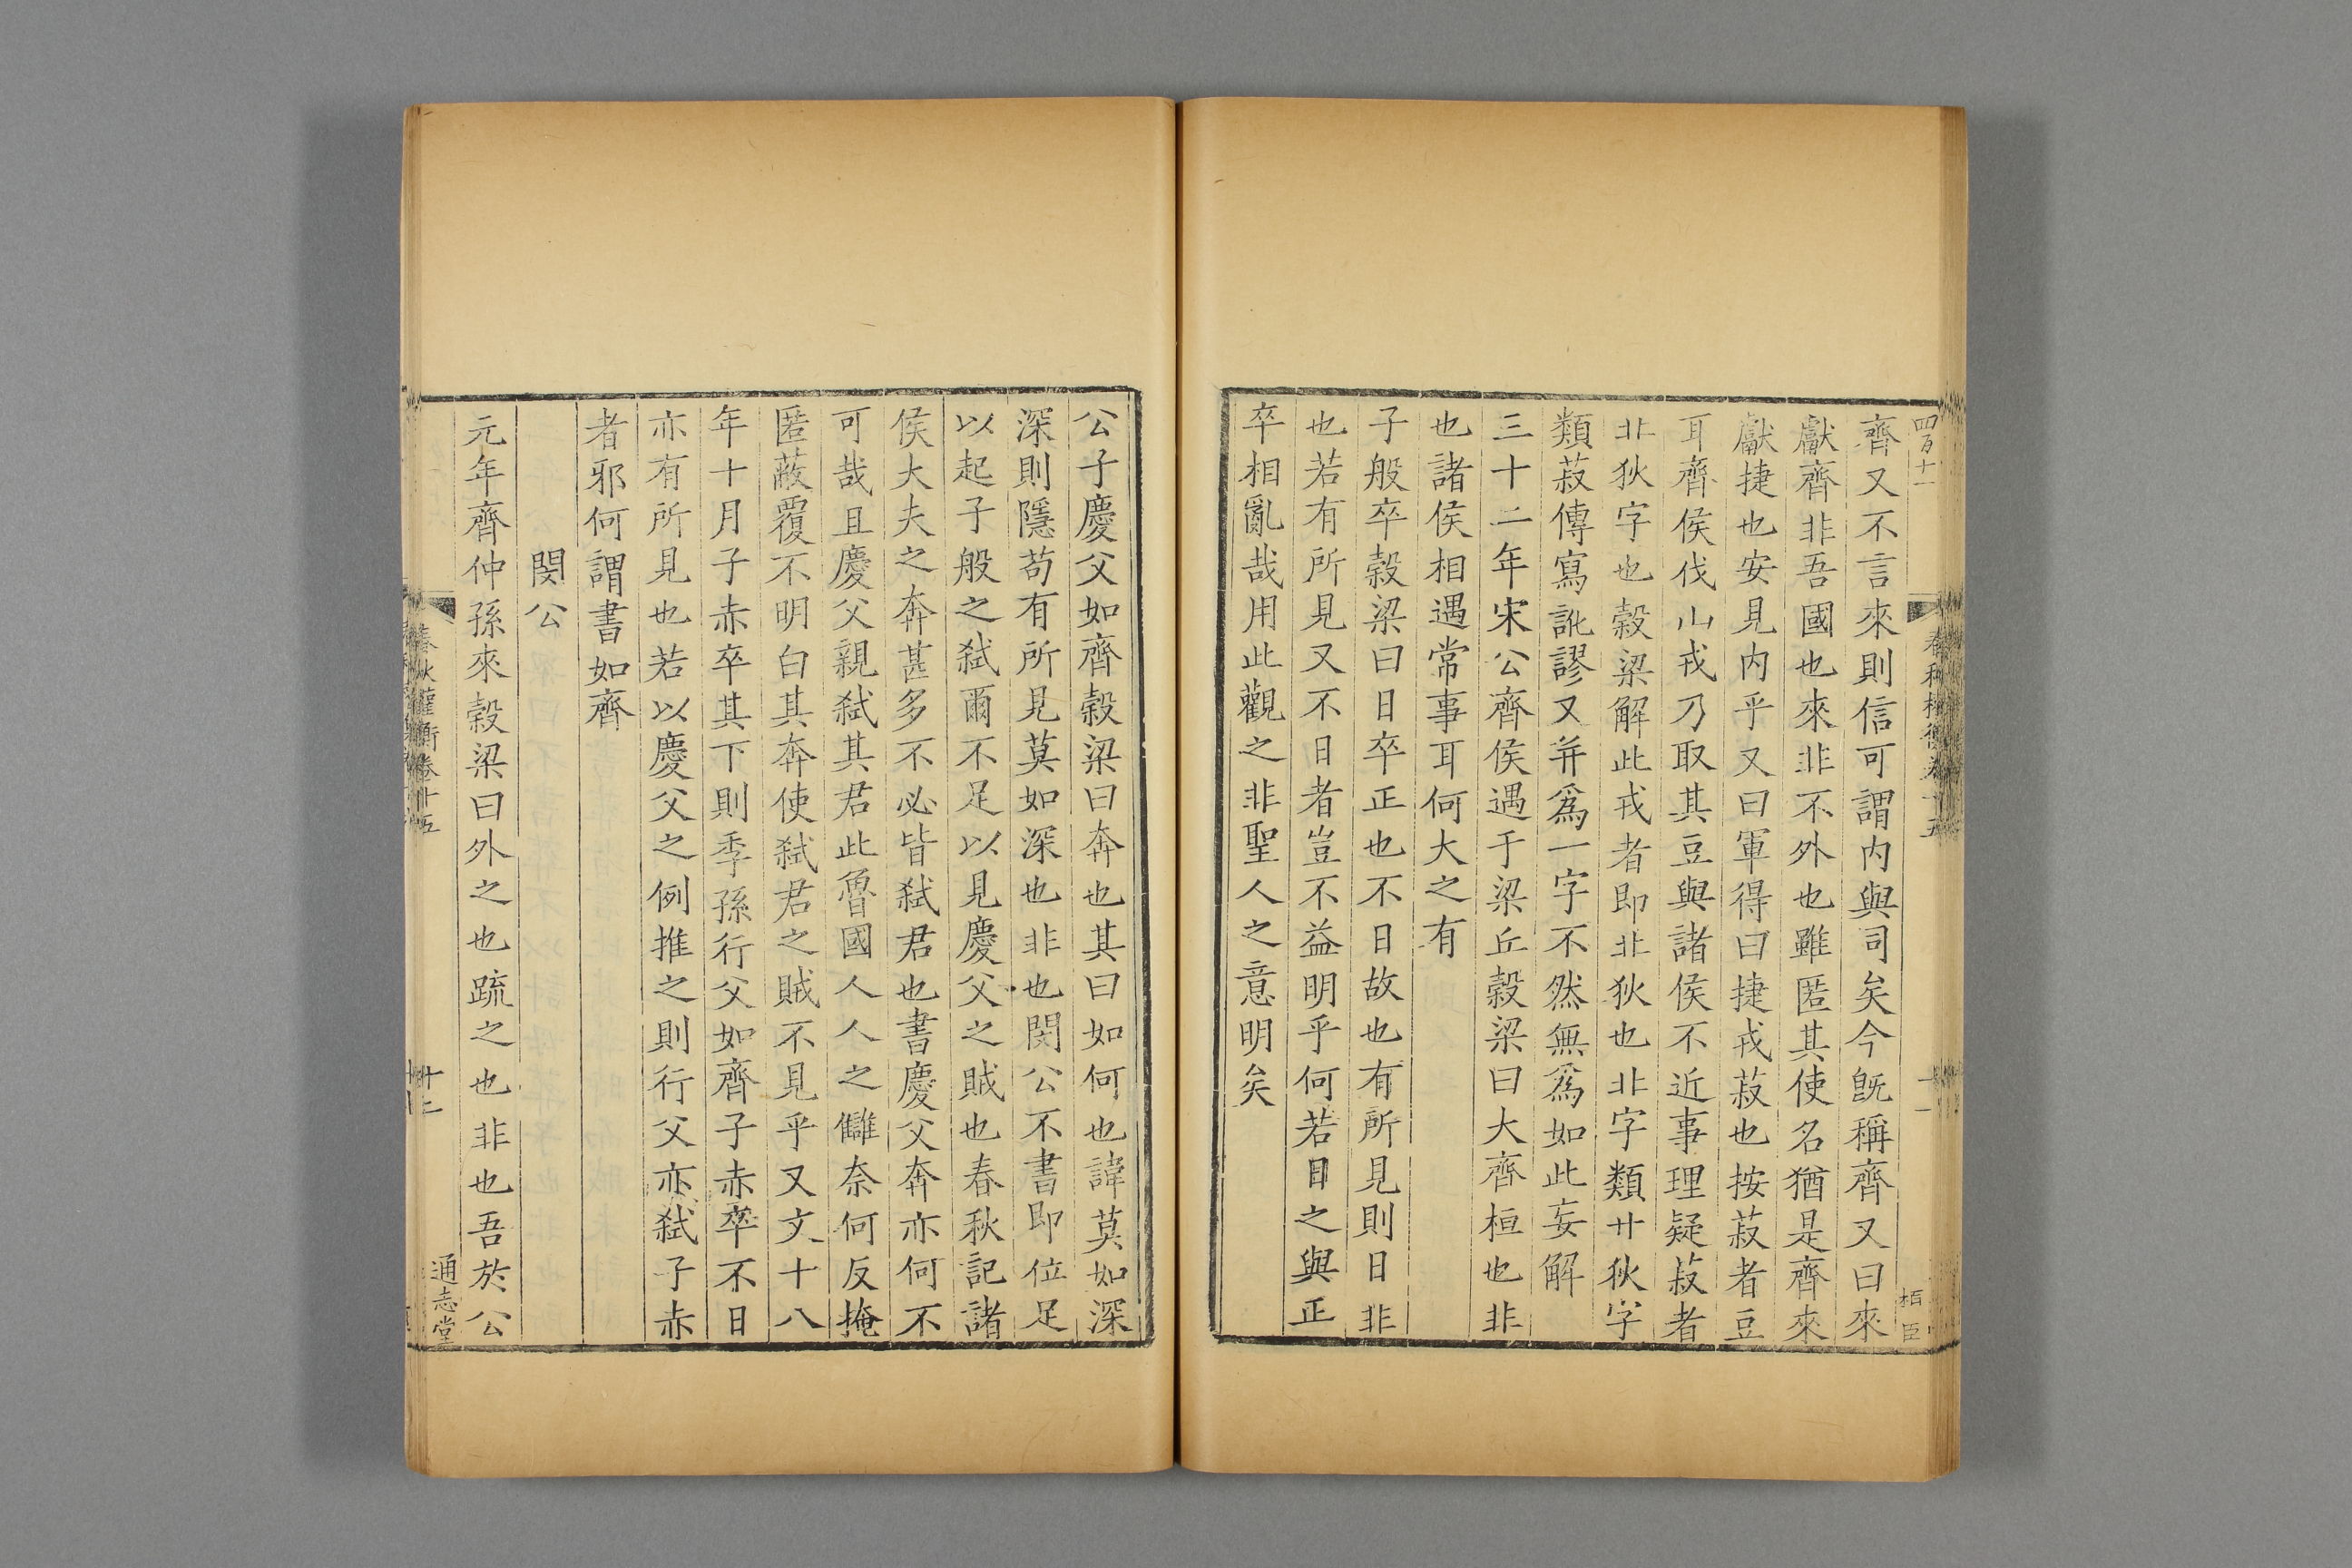 四百十一
齊又不言來則信可謂内與司矣今旣稱齊又曰來
獻齊非吾國也來非不外也雖匿其使名猶是齊來
獻捷也安見内乎又曰軍得曰捷戎菽也按菽者豆
耳齊侯伐山戎乃取其豆與諸侯不近事理疑菽者
北狄字也穀梁解此戎者即北狄也北字類廿狄字
類菽傳寫訛謬又并爲一字不然無爲如此妄解
三十二年宋公齊侯遇于梁丘穀梁曰大齊桓也非
也諸侯相遇常事耳何大之有
子般卒穀梁曰日卒正也不日故也有所見則日非
也若有所見又不日者豈不益明乎何若日之與正
卒相亂哉用此觀之非聖人之意明矣
公子慶父如齊穀梁曰奔也其曰如何也諱莫如深
深則隱苟有所見莫如深也非也閔公不書即位足
以起子般之弑爾不足以見慶父之賊也春秋記諸
侯大夫之奔甚多不必皆弑君也書慶父奔亦何不
可哉且慶父親弑其君此魯國人人之讎奈何反掩
匿蔽覆不明白其奔使弑君之賊不見乎又文十八
年十月子赤卒其下則季孫行父如齊子赤卒不日
亦有所見也若以慶父之例推之則行父亦弑子赤
者邪何謂書如齊
閔公
元年齊仲孫來穀梁曰外之也疏之也非也吾於公
春秋權衡卷十五
十二
通志堂